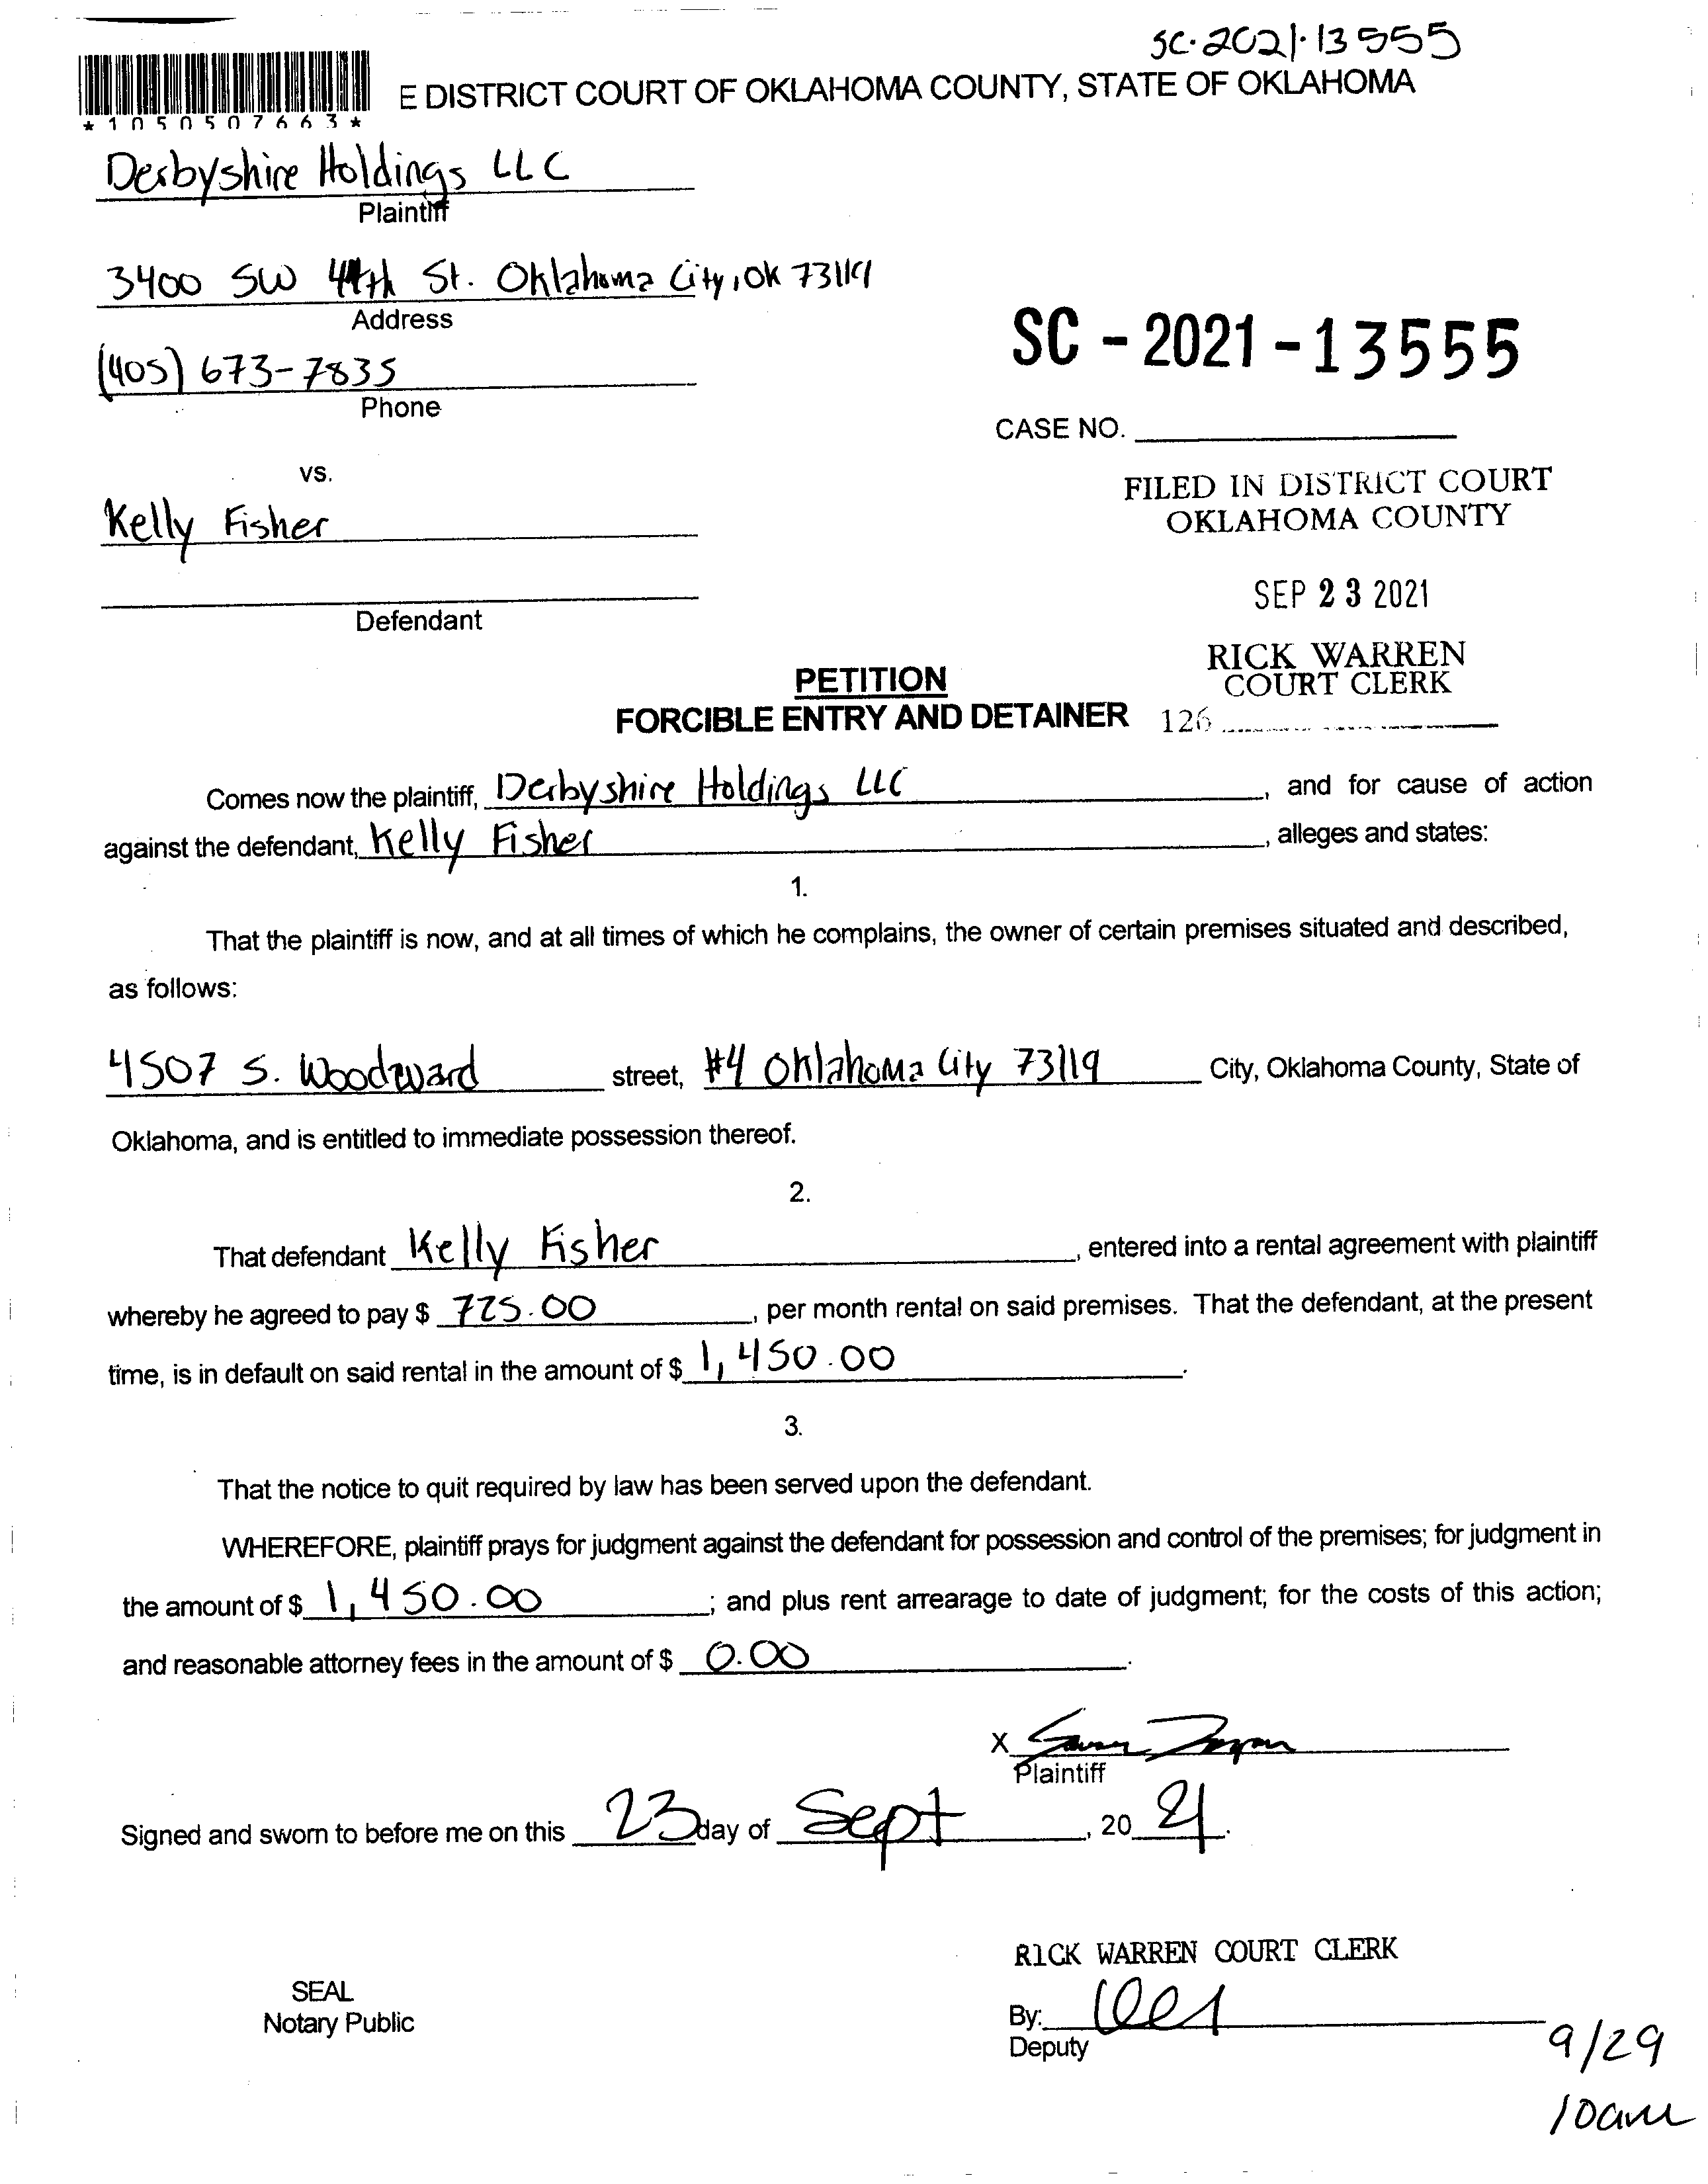 SC-2021-13555
E DISTRICT COURT OF OKLAHOMA COUNTY, STATE OF OKLAHOMA
*1050507663*
Derbyshire Holdings LLC
Plaintiff
3400 SW 44th St. Oklahoma City, OK 73119
Address
SC - 2021 - 13555
(405) 673-7835
Phone
CASE NO.
vs.
FILED IN DISTRICT COURT
OKLAHOMA COUNTY
Kelly Fisher
SEP 23 2021
Defendant
RICK WARREN
COURT CLERK
PETITION
FORCIBLE ENTRY AND DETAINER 126
Comes now the plaintiff, Derbyshire Holdings LLC, and for cause of action
against the defendant, Kelly Fisher, alleges and states:
1.
That the plaintiff is now, and at all times of which he complains, the owner of certain premises situated and described,
as follows:
4507 S. Woodward street, #4 Oklahoma City 73119 City, Oklahoma County, State of
Oklahoma, and is entitled to immediate possession thereof.
2.
That defendant Kelly Fisher, entered into a rental agreement with plaintiff
whereby he agreed to pay $ 725.00, per month rental on said premises. That the defendant, at the present
time, is in default on said rental in the amount of $ 1,450.00.
3.
That the notice to quit required by law has been served upon the defendant.
WHEREFORE, plaintiff prays for judgment against the defendant for possession and control of the premises; for judgment in
the amount of $ 1,450.00; and plus rent arrearage to date of judgment; for the costs of this action;
and reasonable attorney fees in the amount of $ 0.00.
X
Plaintiff
Signed and sworn to before me on this 23 day of Sept, 20 21.
RICK WARREN COURT CLERK
SEAL
Notary Public
By:
Deputy
9/29
10am